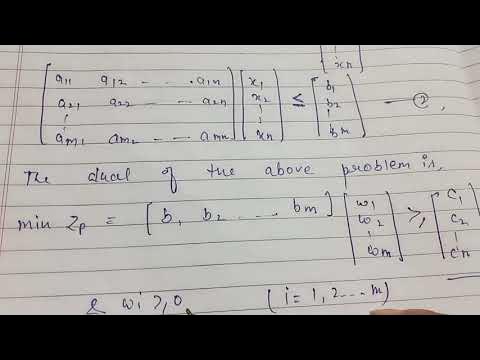 xn
[a11 a12 - - - .a1n] [x1] ≤ [b1]
[a21 a22 - - - a2n] [x2] [b2] — ②,
[am1 am2 - - - amn] [xn] [bm]
The dual of the above problem is,
min Zp = [b1 b2 ... bm] [w1 w2 wm] ≥, [c1 c2 cn]
& wi ≥, 0, (i = 1, 2 --- m)